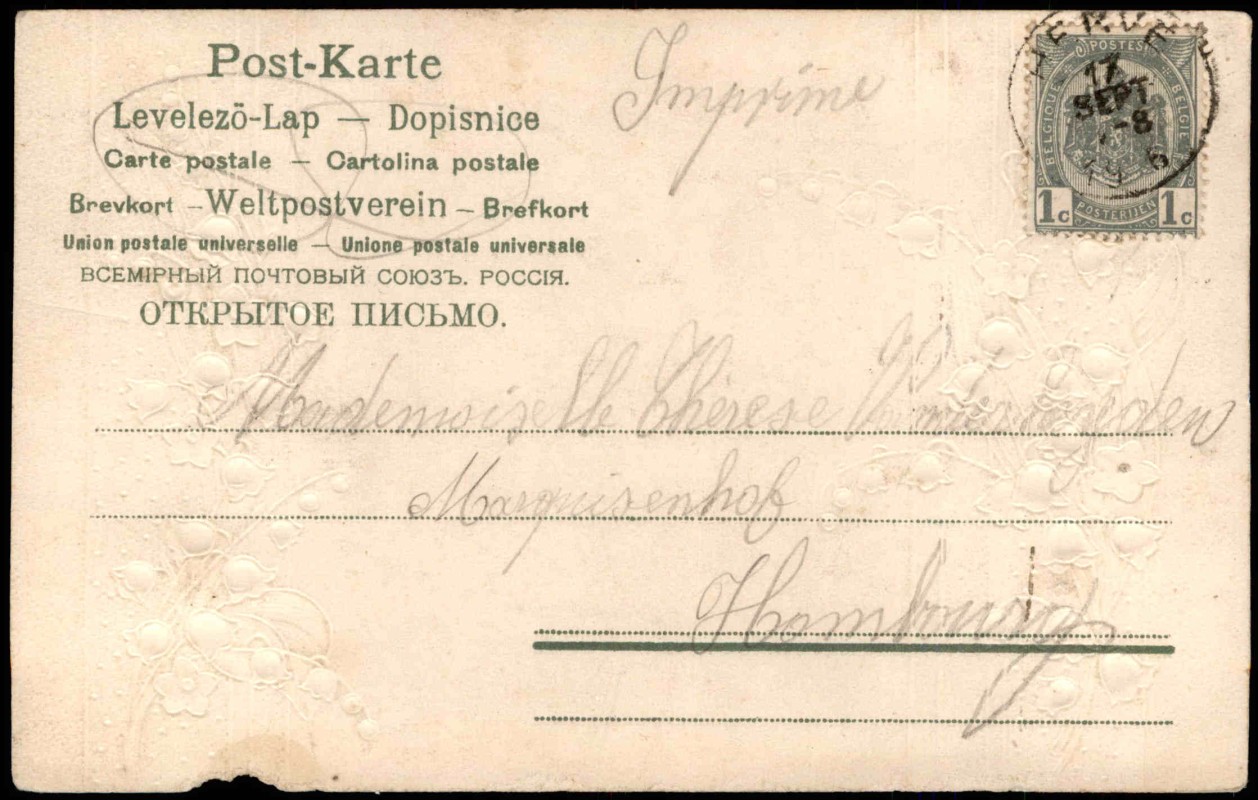 Post-Karte
Levelező-Lap — Dopisnice
Carte postale — Cartolina postale
Brevkort – Weltpostverein – Brefkort
Union postale universelle — Unione postale universale
ВСЕМІРНЫЙ ПОЧТОВЫЙ СОЮЗЪ. РОССІЯ.
ОТКРЫТОЕ ПИСЬМО.
Imprimé
HERVE
17
SEPT
7-8
19 6
POSTES
BELGIQUE
BELGIE
1c 1c
POSTERIJEN
Mademoiselle Thérèse
Marquisenhof
Hombourg